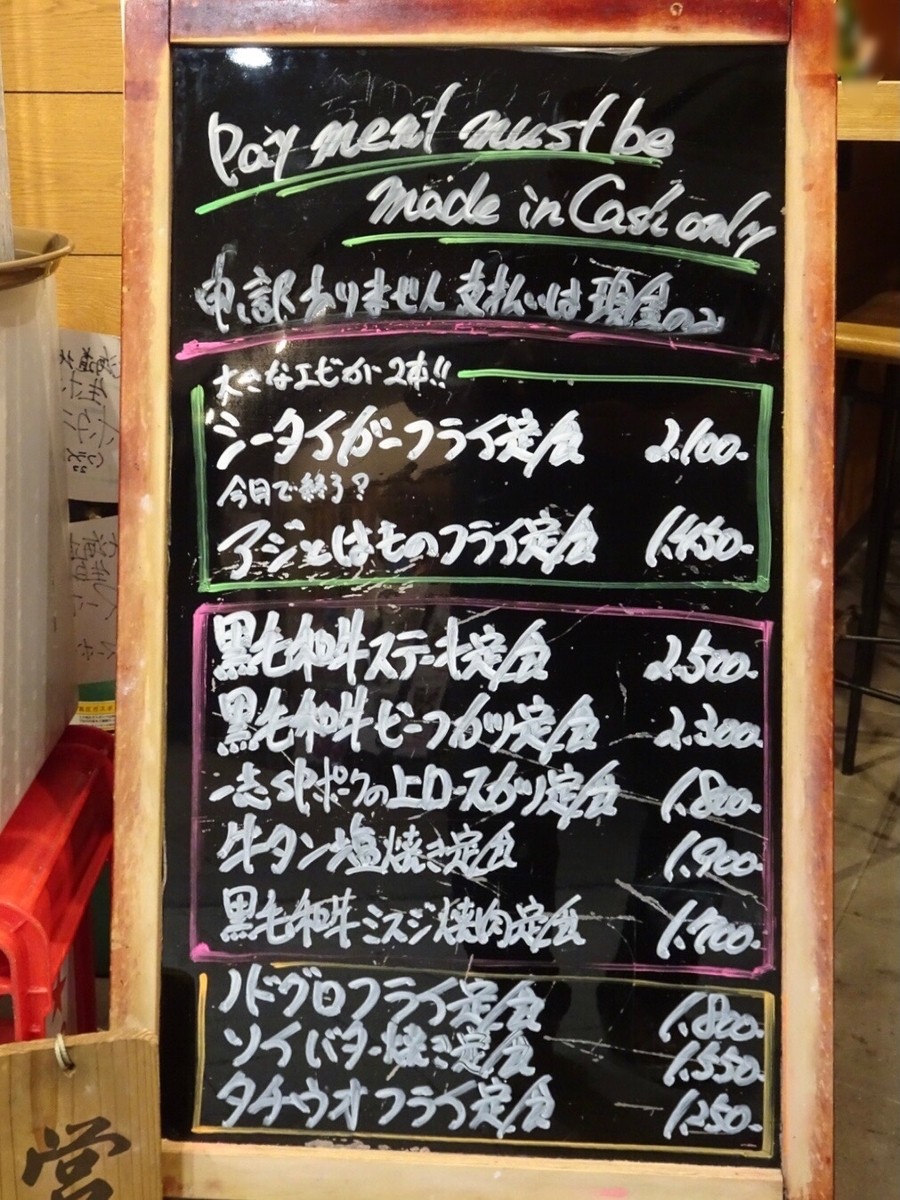 Payment must be
made in Cash only
申訳ありません 支払いは現金のみ
大きなエビが2本!!
シータイガーフライ定食 2.100-
今日で終う?
アジとはものフライ定食 1.450-
黒毛和牛ステーキ定食 2.500-
黒毛和牛ビーフカツ定食 2.300-
SPポークの上ロースカツ定食 1.800-
牛タン塩焼き定食 1.900-
黒毛和牛ミスジ焼肉定食 1.700-
ノドグロフライ定食 1.800-
ソイバター焼き定食 1.550-
タチウオフライ定食 1.250-
営